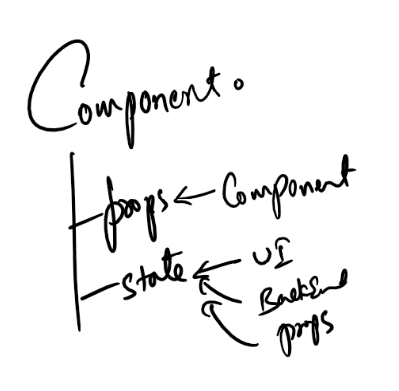 Component.
props ← Component
state ← UI
Backend
props